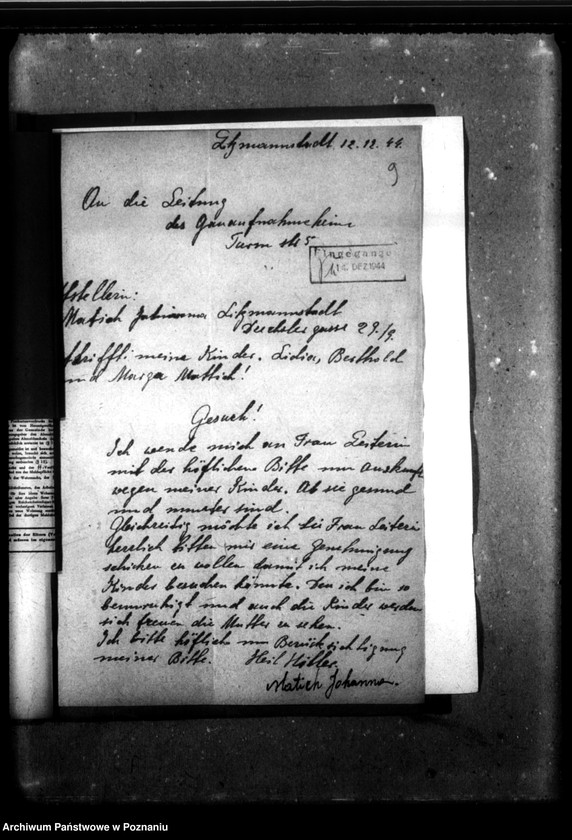 Litzmannstadt. 12.12.44.
9
An die Leitung
des Gauaufnahmeheim
Turm str 5
Eingegange
14. DEZ. 1944
stellerin:
Matich Johanna Litzmannstadt
Drechslergasse 29./9.
trifft: meine Kinder. Lidia, Berthold
nd Marga Mattich!
Gesuch!
Ich wende mich an Frau Leiterin
mit der höflichen Bitte um Auskunft
wegen meiner Kinder. Ob sie gesund
und munter sind.
Gleichzeitig möchte ich Sie Frau Leiterin
herzlich bitten mir eine Genehmigung
schicken zu wollen damit ich meine
Kinder besuchen könnte. Den ich bin so
beunruhigt und auch die Kinder werden
sich freuen die Mutter zu sehen.
Ich bitte höflich um Berücksichtigung
meiner Bitte. Heil Hitler
Matich Johanna.
Archiwum Państwowe w Poznaniu